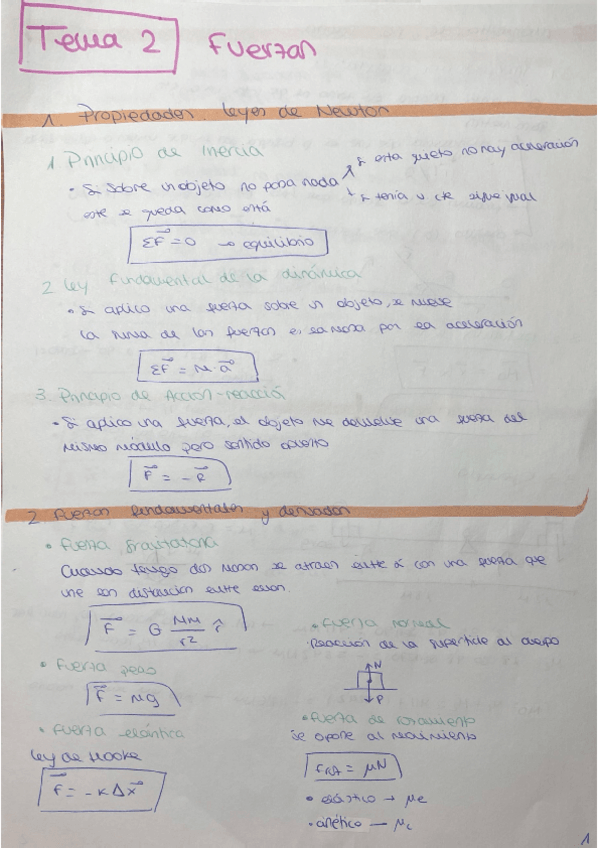 Tema 2 Fuerzas
1. Propiedades. Leyes de Newton
1. Principio de Inercia
• Si sobre un objeto no pasa nada
si esta quieto no hay aceleración
si tenía v cte sigue igual
este se queda como está
ΣF⃗ = 0 → equilibrio
2. Ley fundamental de la dinámica
• Si aplico una fuerza sobre un objeto, se mueve
La suma de las fuerzas es la masa por la aceleración
ΣF⃗ = M · a⃗
3. Principio de Acción-reacción
• Si aplico una fuerza, el objeto me devuelve una fuerza del
mismo módulo pero sentido opuesto
F⃗ = -F⃗
2. Fuerzas fundamentales y derivadas
• Fuerza gravitatoria
Cuando tengo dos masas se atraen entre si con una fuerza que
une son distancias entre esas.
F⃗ = G Mm/r² r̂
• Fuerza peso
F⃗ = mg
• Fuerza elástica
Ley de Hooke
F⃗ = -kΔx⃗
• Fuerza normal
Reacción de la superficie al cuerpo
N
P
• Fuerza de rozamiento
Se opone al movimiento
FRoz = μN
• estático → μe
• cinético — μc
1